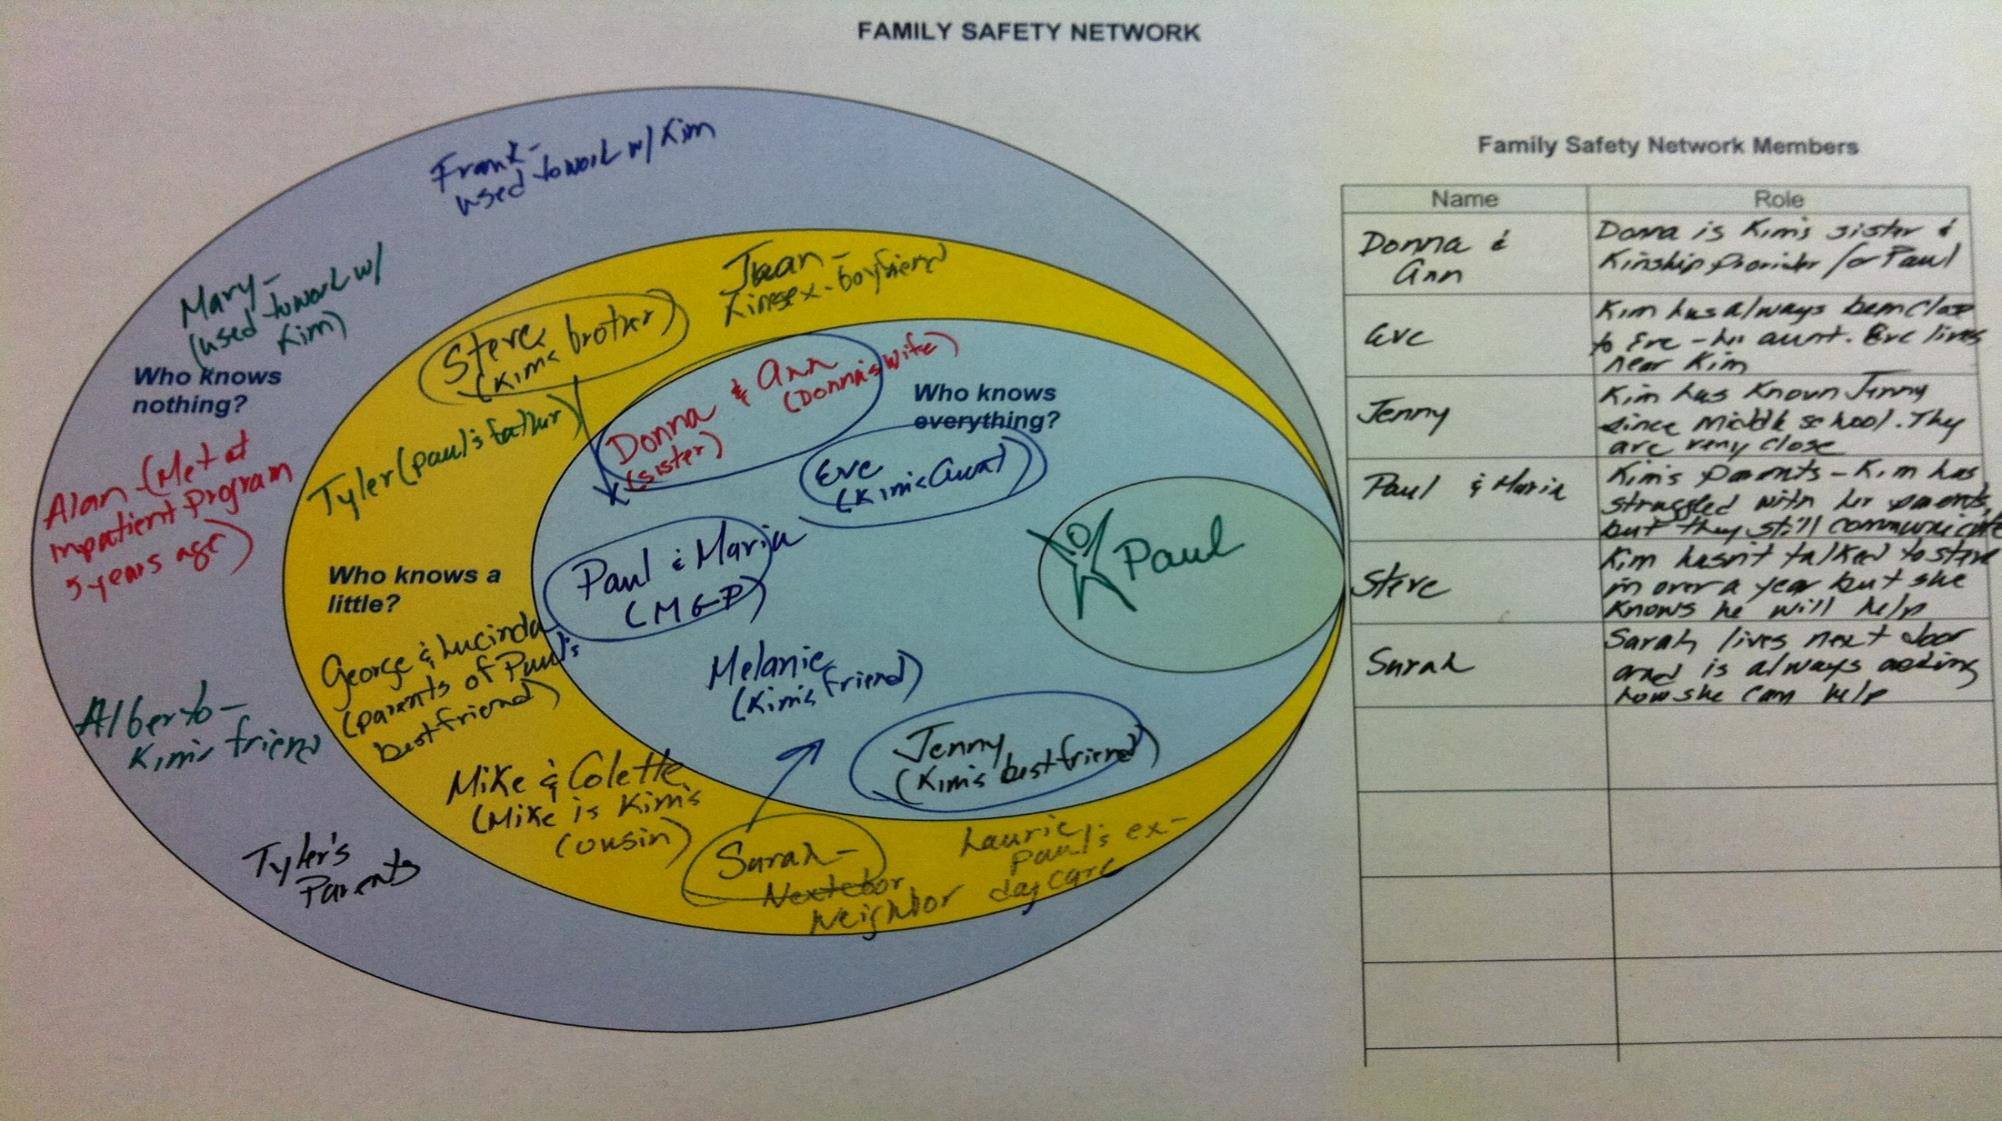 FAMILY SAFETY NETWORK
Frank-
used to work w/ Kim
Mary-
(used to work w/
Kim)
Who knows
nothing?
Alan-(Met at
inpatient program
5 years ago)
Alberto-
Kim's friend
Tyler's
Parents
Juan-
Kim's ex-boyfriend
Steve
(Kim's brother)
Tyler (Paul's father)
Who knows a
little?
George & Lucinda
(parents of Paul's
best friend)
Mike & Colette
(Mike is Kim's
cousin)
Sarah-
Neighbor
Laurie
Paul's ex-
daycare
Donna & Ann
(sister)
(Donna's wife)
Who knows
everything?
Eve
(Kim's Aunt)
Paul & Maria
(MGP)
Melanie
(Kim's friend)
Jenny
(Kim's best friend)
Paul
Family Safety Network Members
Name Role
Donna &
Ann
Donna is Kim's sister &
Kinship Provider for Paul
Eve
Kim has always been close
to Eve - her aunt. Eve lives
near Kim
Jenny
Kim has known Jenny
since middle school. They
are very close
Paul & Maria
Kim's parents - Kim has
struggled with her parents,
but they still communicate
Steve
Kim hasn't talked to Steve
in over a year but she
knows he will help
Sarah
Sarah lives next door
and is always asking
how she can help